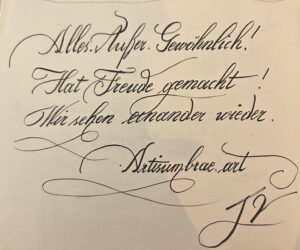 Alles. Außer. Gewöhnlich!
Hat Freude gemacht!
Wir sehen einander wieder.
Artisumbrae.art
JV